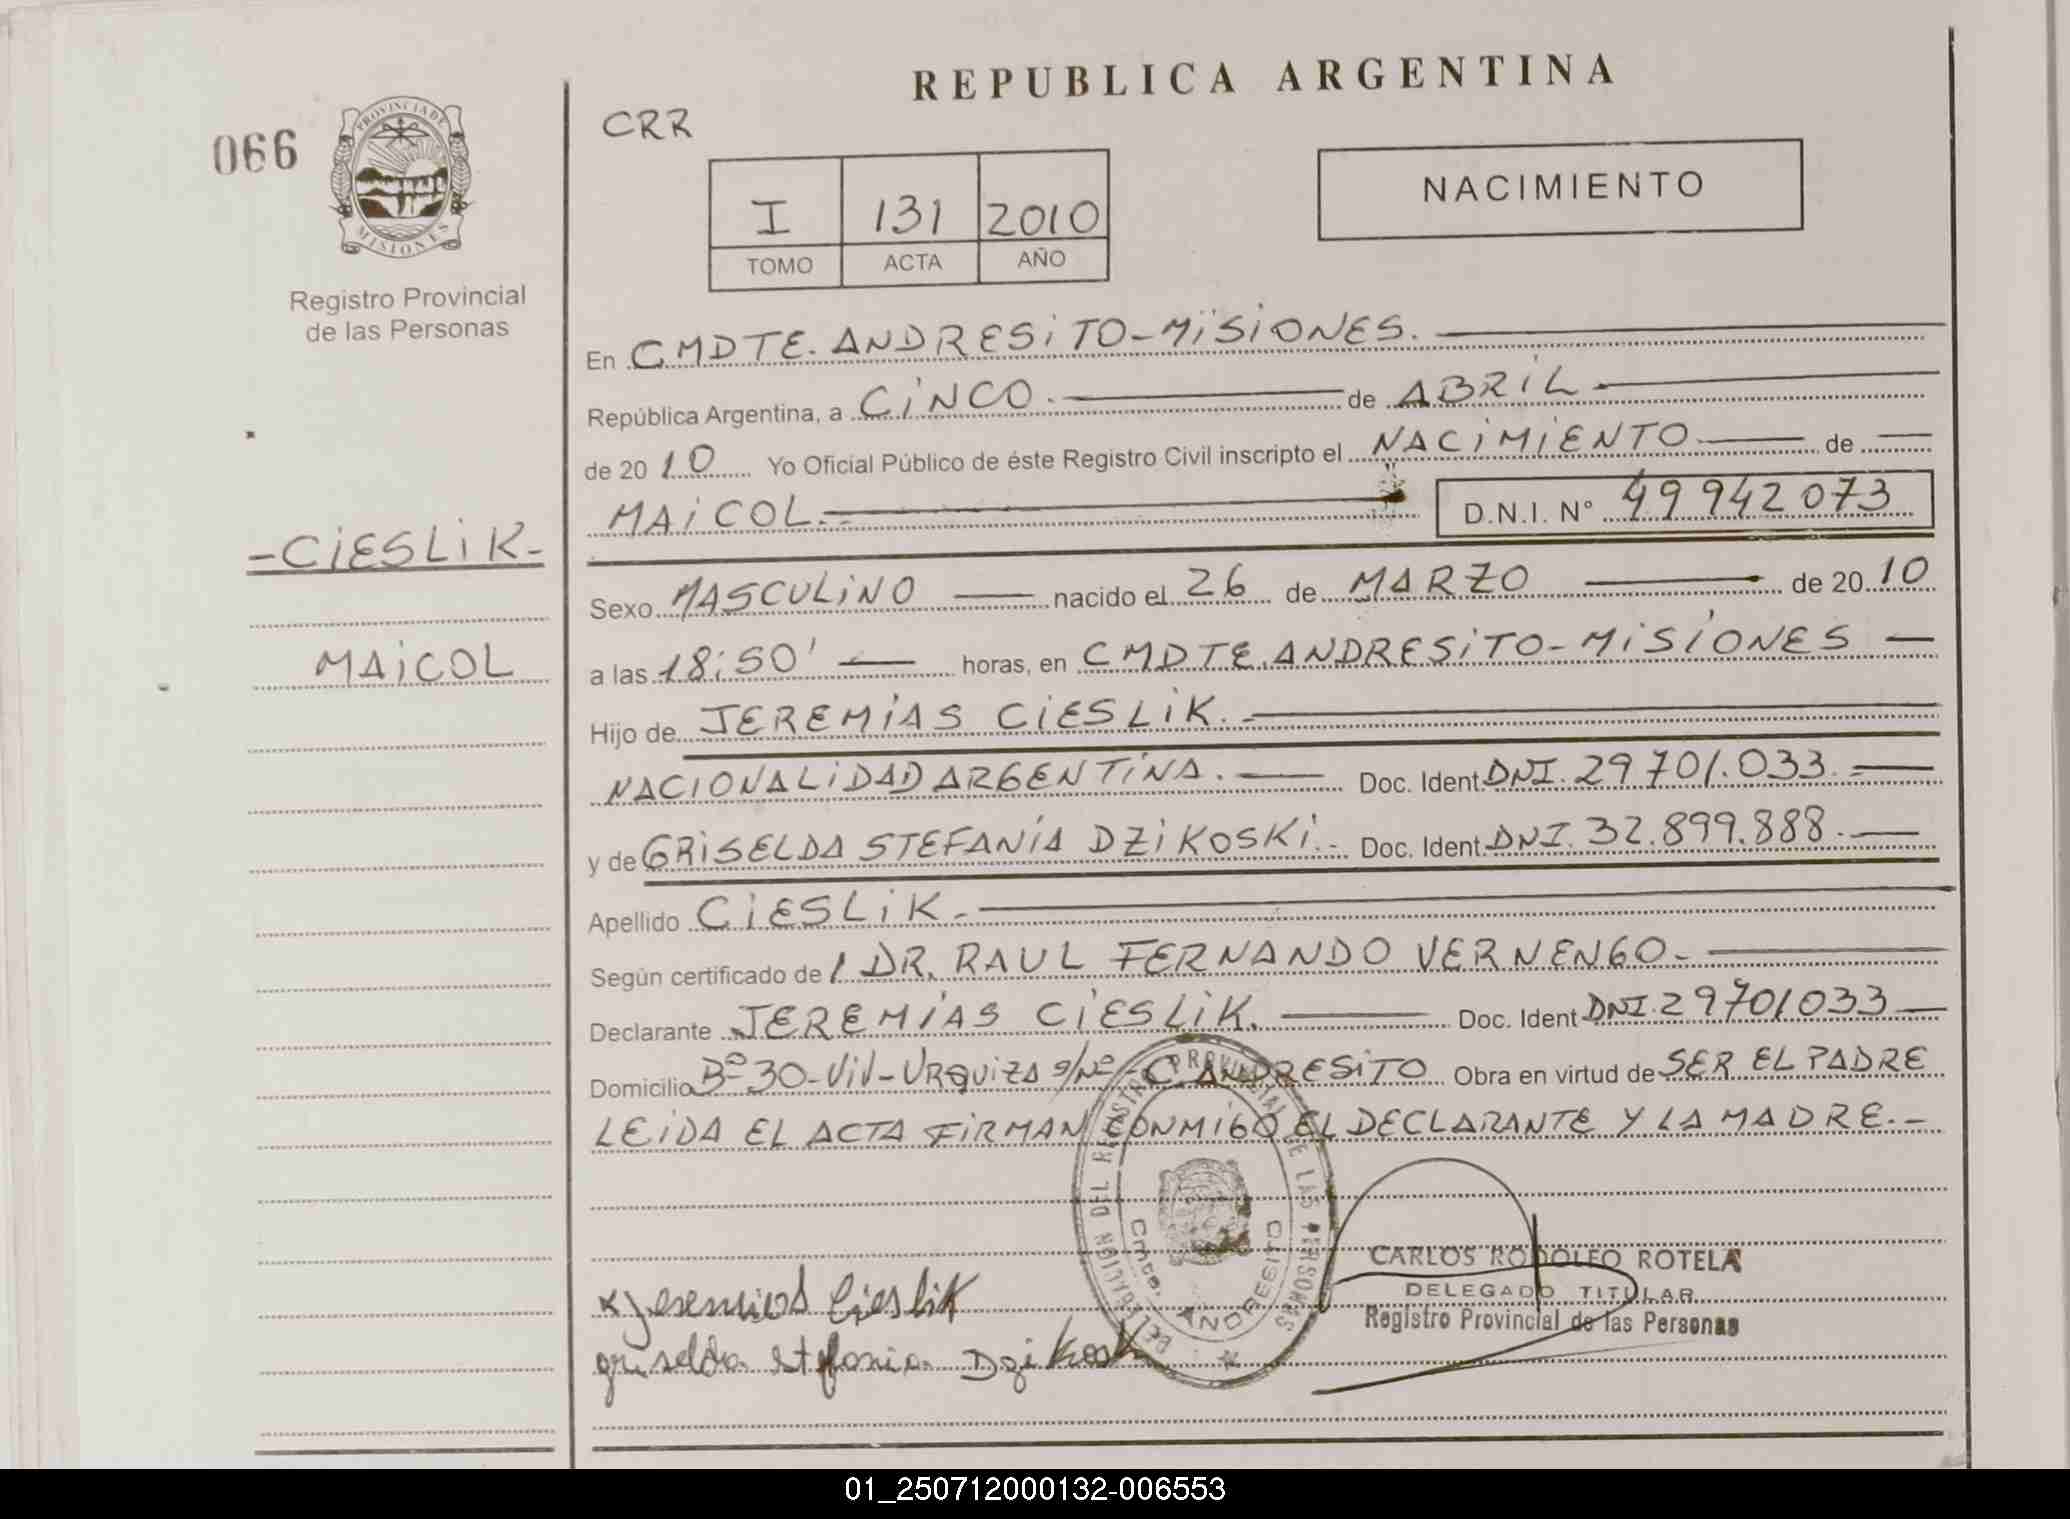 REPUBLICA ARGENTINA
066
PROVINCIA DE
MISIONES
Registro Provincial
de las Personas
CRR
I 131 2010
TOMO ACTA AÑO
NACIMIENTO
En CMDTE. ANDRESITO-MISIONES.
República Argentina, a CINCO. de ABRIL
de 2010 Yo Oficial Público de éste Registro Civil inscripto el NACIMIENTO de
MAICOL. D.N.I. Nº 49942073
-CIESLIK-
MAICOL
Sexo MASCULINO nacido el 26 de MARZO de 2010
a las 18:50' horas, en CMDTE. ANDRESITO-MISIONES
Hijo de JEREMÍAS CIESLIK.
NACIONALIDAD ARGENTINA. Doc. Ident DNI. 29.701.033.
y de GRISELDA STEFANÍA DZIKOSKI.- Doc. Ident. DNI. 32.899.888.
Apellido CIESLIK.
Según certificado de / DR. RAUL FERNANDO VERNENGO.
Declarante JEREMÍAS CIESLIK. Doc. Ident DNI. 29701033
Domicilio Bº 30-Viv-URQUIZA s/Nº-C. ANDRESITO Obra en virtud de SER EL PADRE
LEIDA EL ACTA FIRMAN CONMIGO EL DECLARANTE Y LA MADRE.-
DELEGACION DEL REGISTRO PROVINCIAL DE LAS PERSONAS
Cmte. ANDRESITO
CARLOS RODOLFO ROTELA
DELEGADO TITULAR
Registro Provincial de las Personas
Cieslik
griselda stefania Dzikoski
01_250712000132-006553